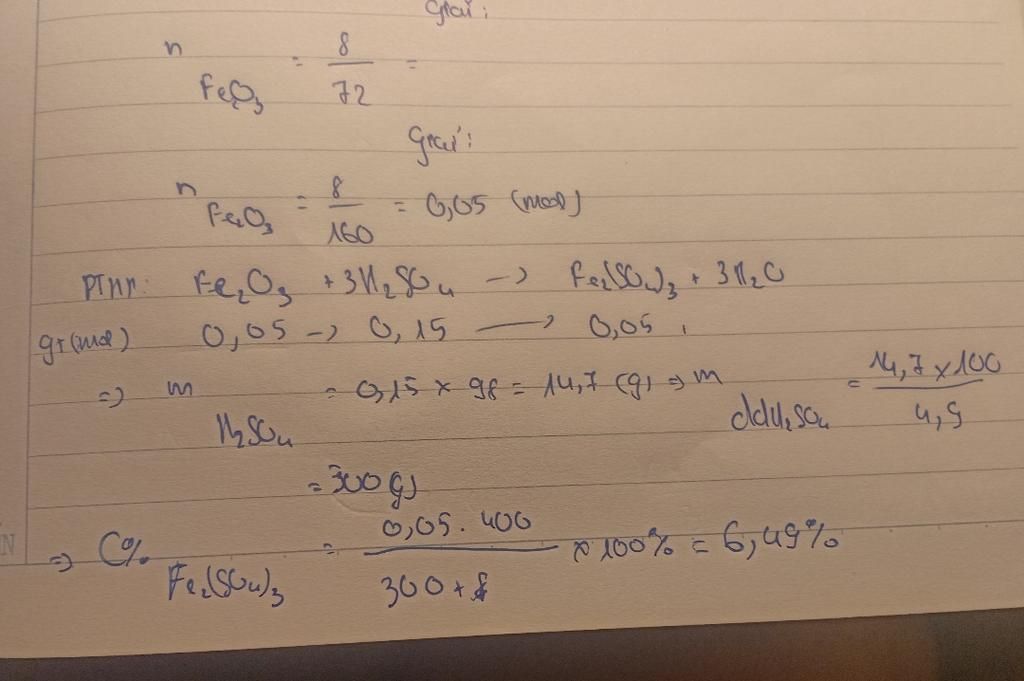 Giải:
n Fe2O3 = 8/72 =
Giải:
n Fe2O3 = 8/160 = 0,05 (mol)
PTHH: Fe2O3 + 3H2SO4 -> Fe2(SO4)3 + 3H2O
gt(mol) 0,05 -> 0,15 -> 0,05
=> m H2SO4 = 0,15 x 98 = 14,7 (g) => m ddH2SO4 = 14,7 x 100/4,9
= 300 (g)
=> C% Fe2(SO4)3 = 0,05. 400/300 + 8 x 100% = 6,49%